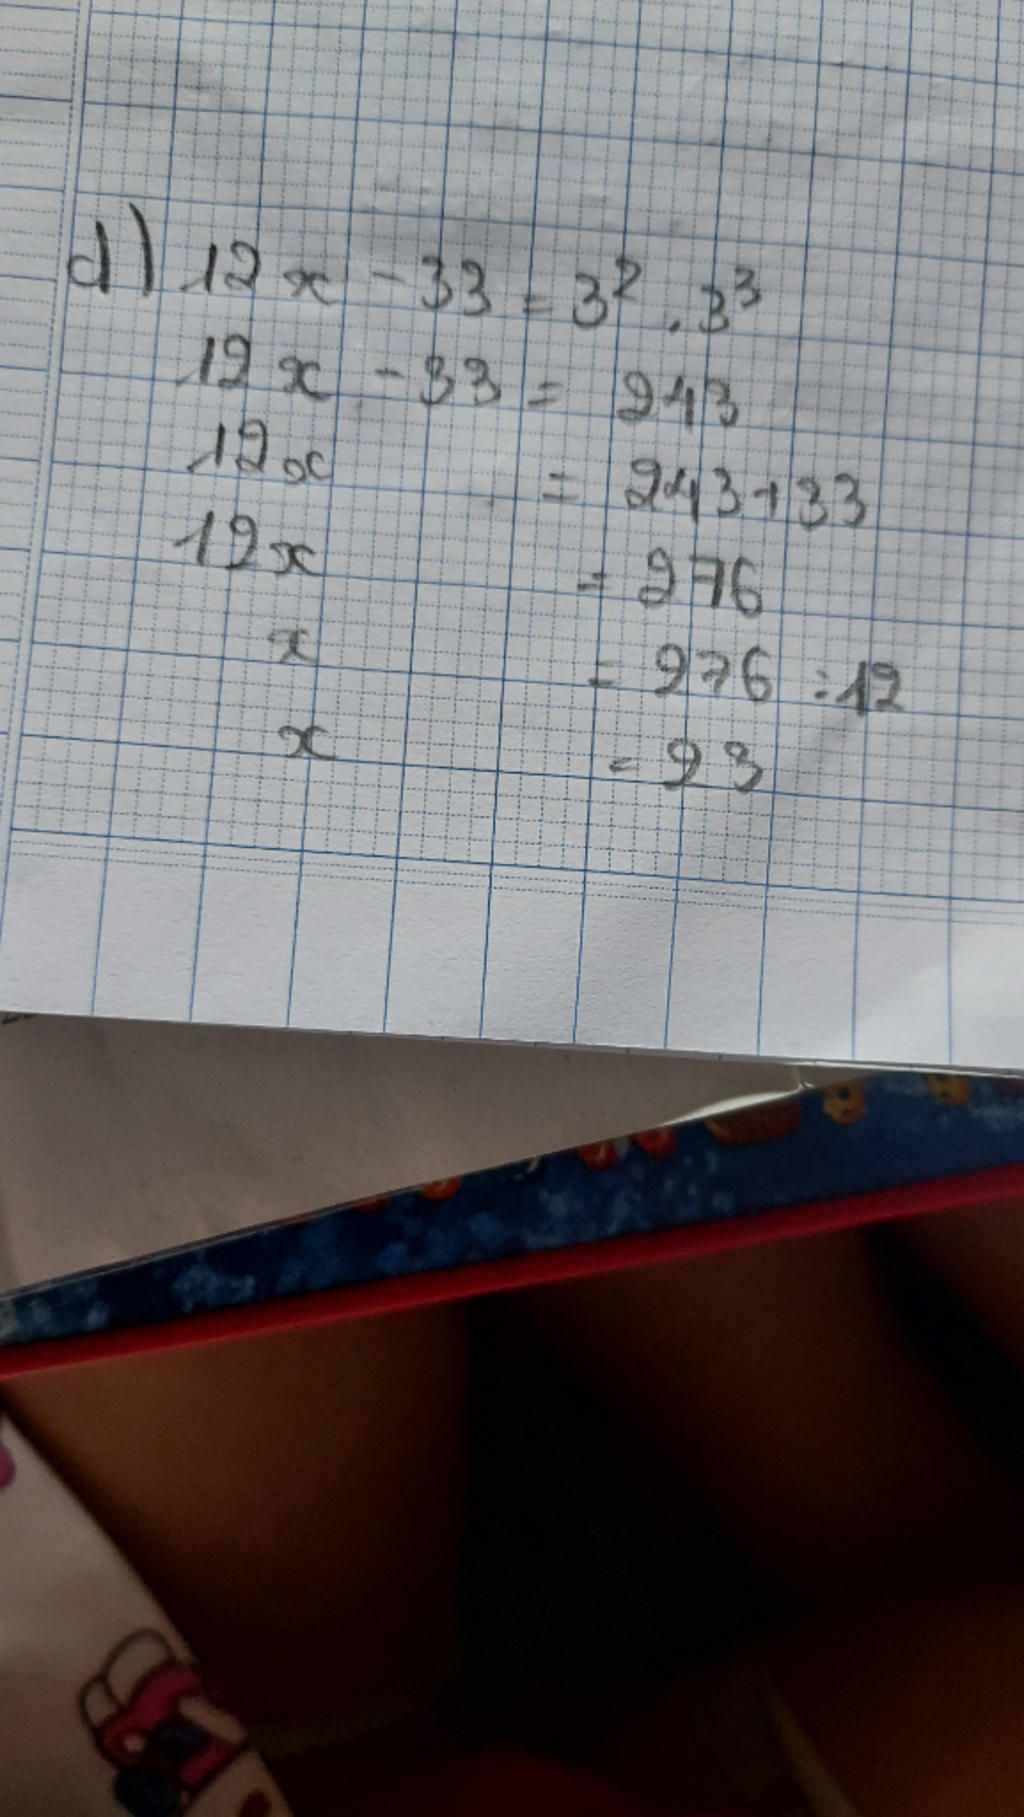 d) 12x - 33 = 3² . 3³
12x - 33 = 243
12x = 243 + 33
12x = 276
x = 276 : 12
x = 23